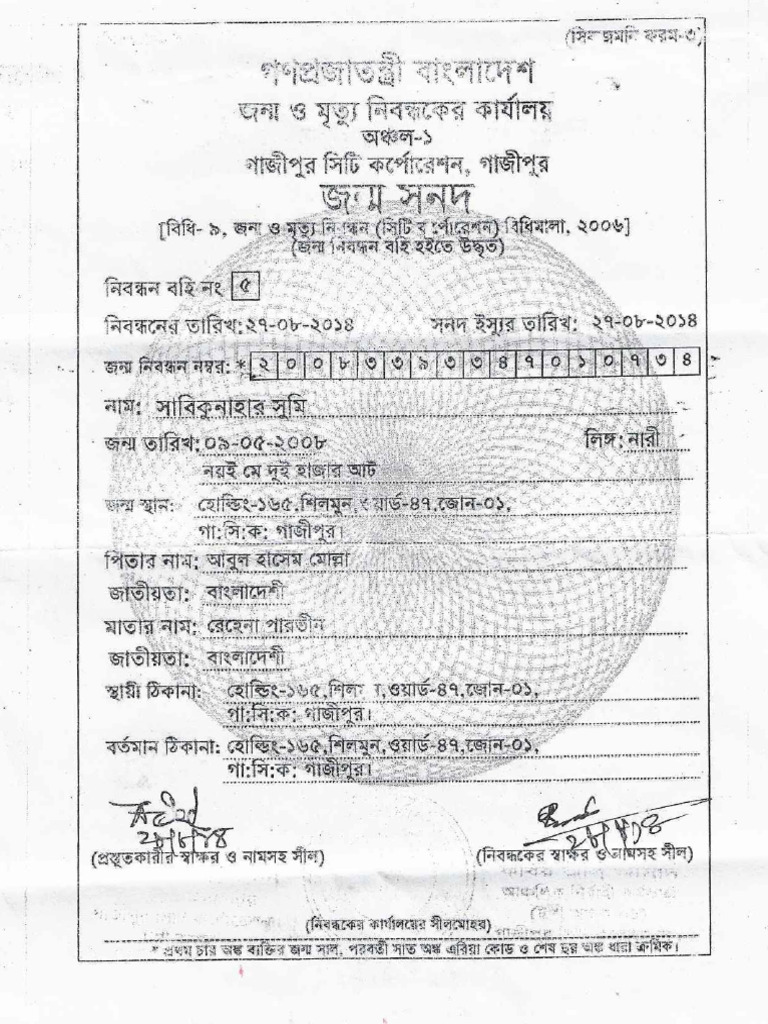 (সিব জমনি ফরম-৩)
গণপ্রজাতন্ত্রী বাংলাদেশ
জন্ম ও মৃত্যু নিবন্ধকের কার্যালয়
অঞ্চল-১
গাজীপুর সিটি কর্পোরেশন, গাজীপুর
জন্ম সনদ
[বিধি- ৯, জন্ম ও মৃত্যু নিবন্ধন (সিটি কর্পোরেশন) বিধিমালা, ২০০৬]
(জন্ম নিবন্ধন বহি হইতে উদ্ধৃত)
নিবন্ধন বহি নং ৫
নিবন্ধনের তারিখ: ২৭-০৮-২০১৪ সনদ ইস্যুর তারিখ: ২৭-০৮-২০১৪
জন্ম নিবন্ধন নম্বর: * ২ ০ ০ ৮ ৩ ৩ ৯ ৩ ৩ ৪ ৭ ০ ১ ০ ৭ ৩ ৪
নাম: সাবিকুনাহার সুমি
জন্ম তারিখ: ০৯-০৫-২০০৮ লিঙ্গ: নারী
নয়ই মে দুই হাজার আট
জন্ম স্থান: হোল্ডিং-১৬৫,শিলমুন,ওয়ার্ড-৪৭,জোন-০১,
গা:সি:ক: গাজীপুর।
পিতার নাম: আবুল হাসেম মোল্লা
জাতীয়তা: বাংলাদেশী
মাতার নাম: রেহেনা পারভীন
জাতীয়তা: বাংলাদেশী
স্থায়ী ঠিকানা: হোল্ডিং-১৬৫,শিলমুন,ওয়ার্ড-৪৭,জোন-০১,
গা:সি:ক: গাজীপুর।
বর্তমান ঠিকানা: হোল্ডিং-১৬৫,শিলমুন,ওয়ার্ড-৪৭,জোন-০১,
গা:সি:ক: গাজীপুর।
(প্রস্তুতকারীর স্বাক্ষর ও নামসহ সীল) (নিবন্ধকের স্বাক্ষর ও নামসহ সীল)
(নিবন্ধকের কার্যালয়ের সীলমোহর)
* প্রথম চার অঙ্ক ব্যক্তির জন্ম সাল, পরবর্তী সাত অঙ্ক এরিয়া কোড ও শেষ ছয় অঙ্ক ধারা ক্রমিক।